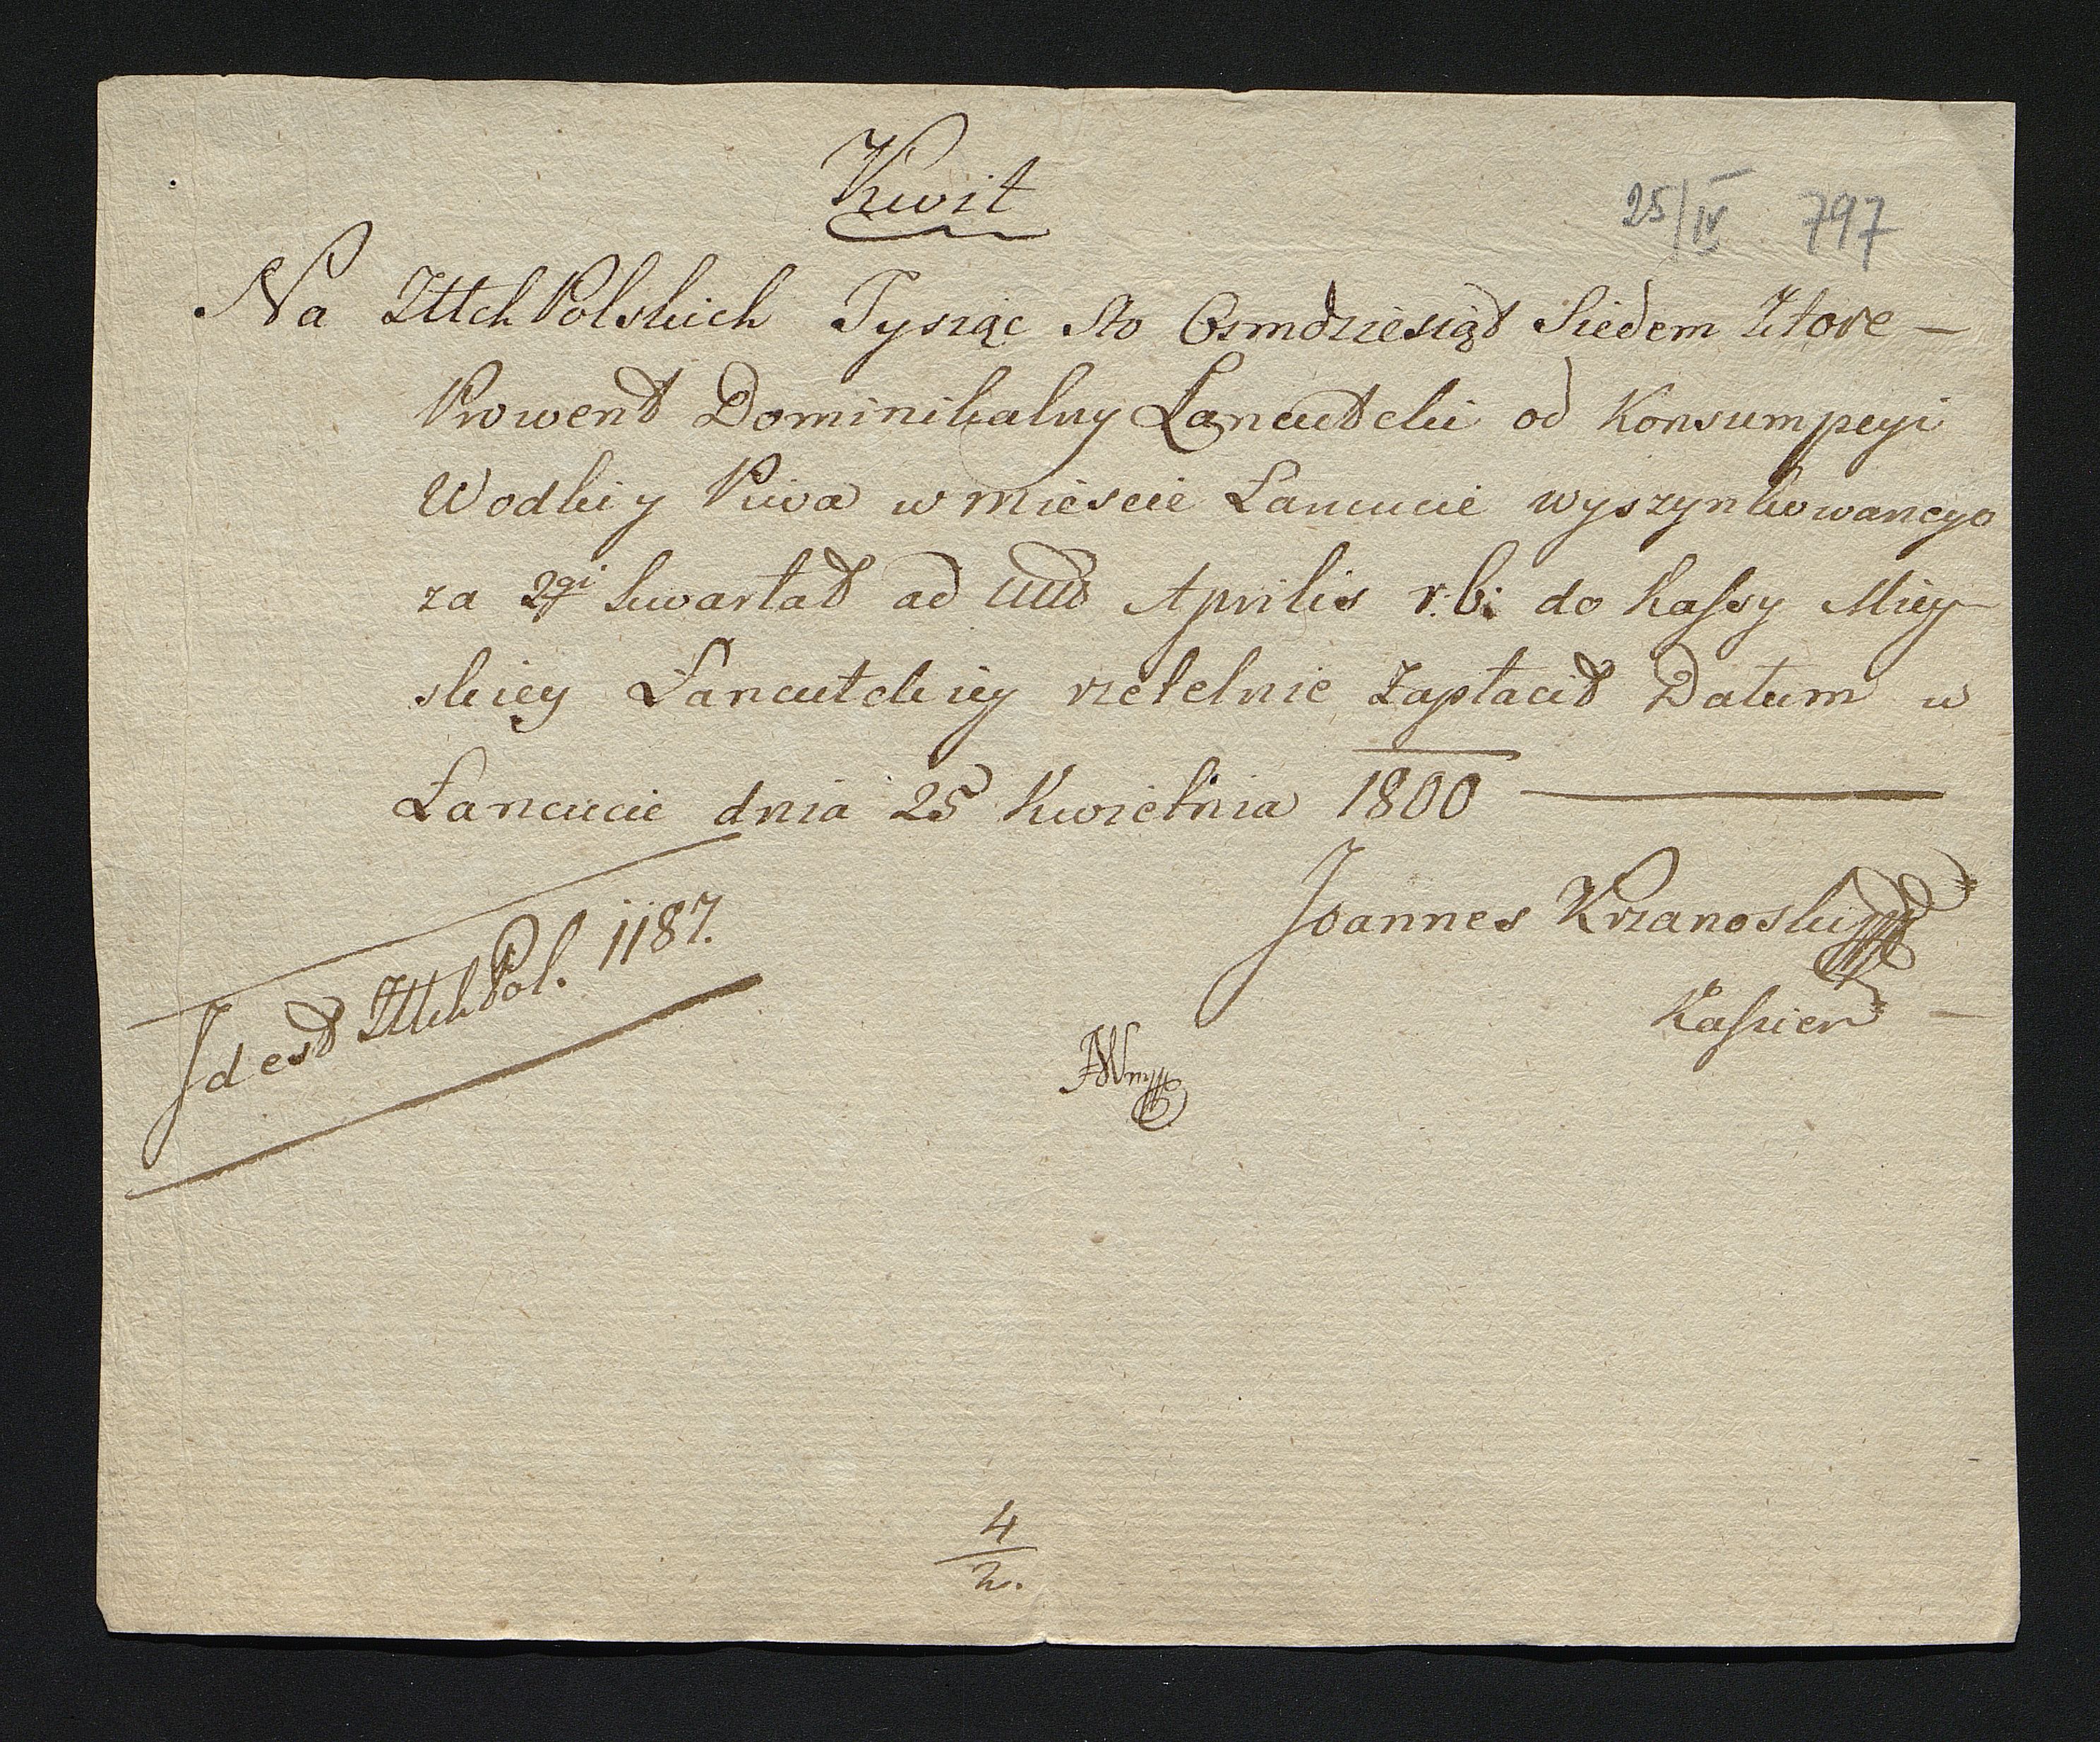 Kwit
25/IV 797
Na Złłch Polskich Tysiąc sto Osmdziesiąt Siedem Które —
Prowent Dominikalny Łancutski od Konsumpcyi
Wodki y Piwa w mieście Łancucie wyszynkowanego
za 2gi kwartał ad ult Aprilis r: b: do Kassy Miey
skiey Łancutskiey rzetelnie zapłacił Datum w
Łancucie dnia 25 Kwietnia 1800
Joannes Krzanoski
Kassier
Id est Złłch Pol. 1187.
4
2.